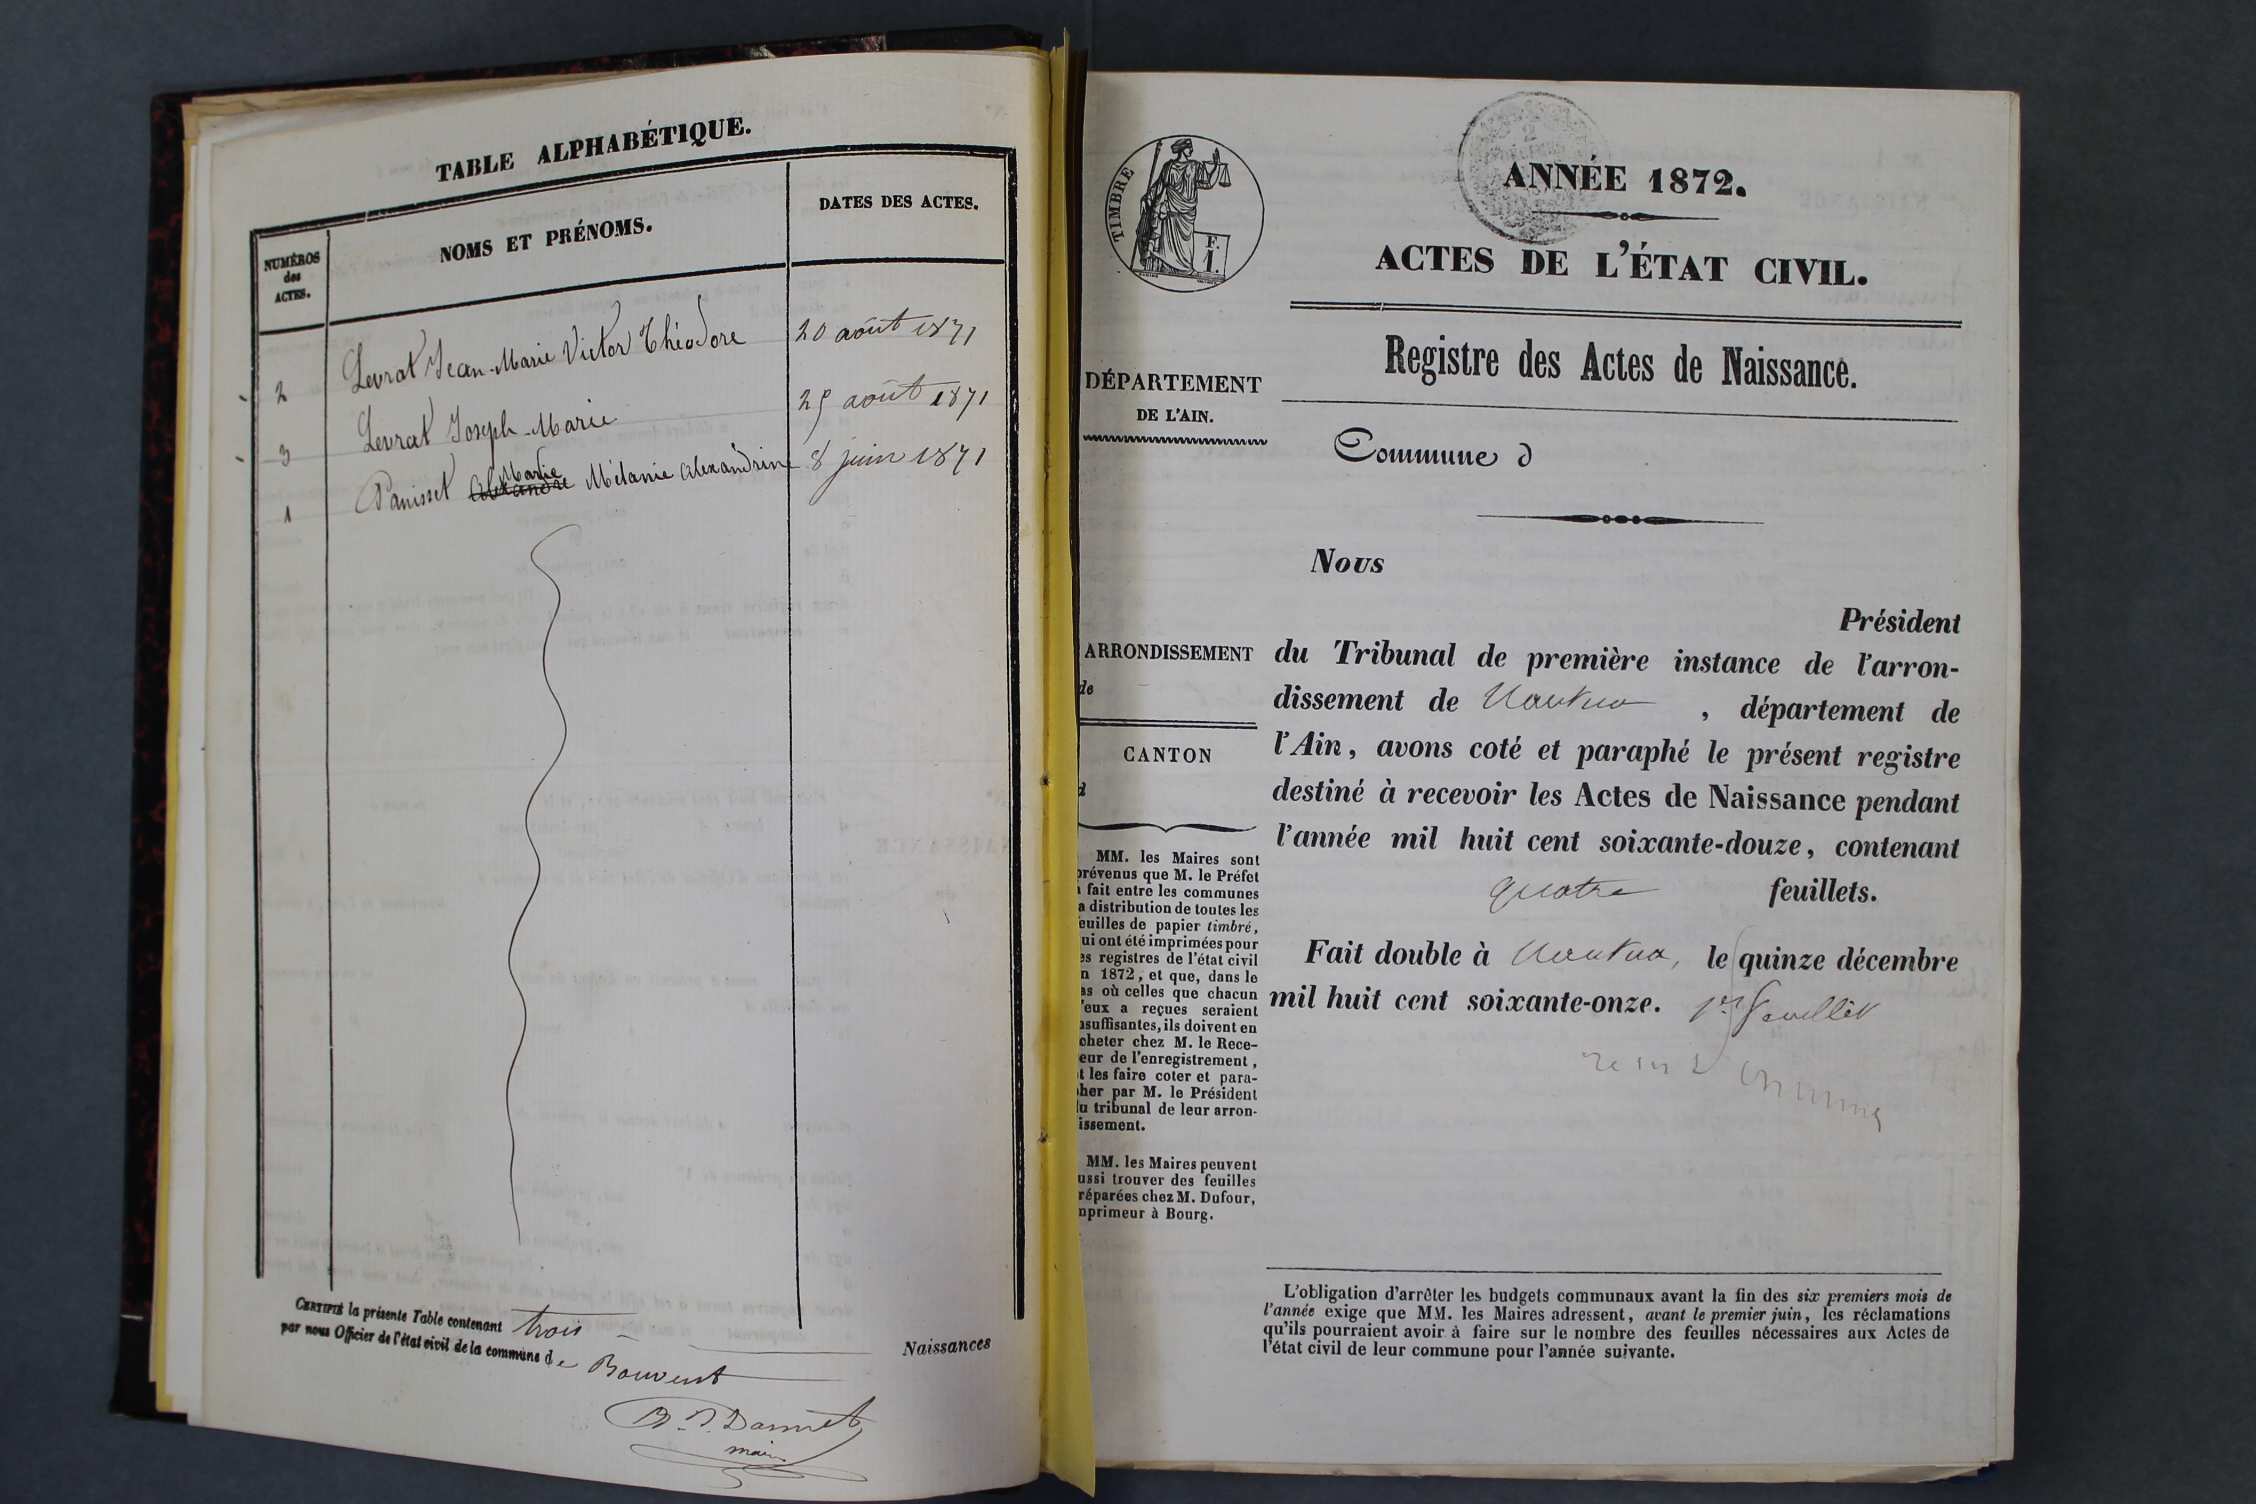 TABLE ALPHABÉTIQUE.
NUMÉROS
des
ACTES.
NOMS ET PRÉNOMS.
DATES DES ACTES.
2 Levrat Jean-Marie Victor Théodore 20 août 1871
3 Levrat Joseph-Marie 25 août 1871
Marie
1 Panisset Alexandre Mélanie Alexandrine 8 juin 1871
CERTIFIÉ la présente Table contenant trois Naissances
par nous Officier de l'état civil de la commune de Bouvent
maire
TIMBRE
F.
1.
2
ANNÉE 1872.
ACTES DE L'ÉTAT CIVIL.
Registre des Actes de Naissance.
DÉPARTEMENT
DE L'AIN.
Commune d
Nous
Président
ARRONDISSEMENT
de
du Tribunal de première instance de l'arron-
dissement de Nantua, département de
l'Ain, avons coté et paraphé le présent registre
destiné à recevoir les Actes de Naissance pendant
l'année mil huit cent soixante-douze, contenant
quatre feuillets.
Fait double à Nantua, le quinze décembre
mil huit cent soixante-onze. 1er feuillet
CANTON
d
MM. les Maires sont
prévenus que M. le Préfet
a fait entre les communes
a distribution de toutes les
feuilles de papier timbré,
ui ont été imprimées pour
es registres de l'état civil
n 1872, et que, dans le
as où celles que chacun
'eux a reçues seraient
nsuffisantes, ils doivent en
cheter chez M. le Rece-
eur de l'enregistrement,
t les faire coter et para-
her par M. le Président
u tribunal de leur arron-
issement.
MM. les Maires peuvent
ussi trouver des feuilles
réparées chez M. Dufour,
mprimeur à Bourg.
L'obligation d'arrêter les budgets communaux avant la fin des six premiers mois de
l'année exige que MM. les Maires adressent, avant le premier juin, les réclamations
qu'ils pourraient avoir à faire sur le nombre des feuilles nécessaires aux Actes de
l'état civil de leur commune pour l'année suivante.